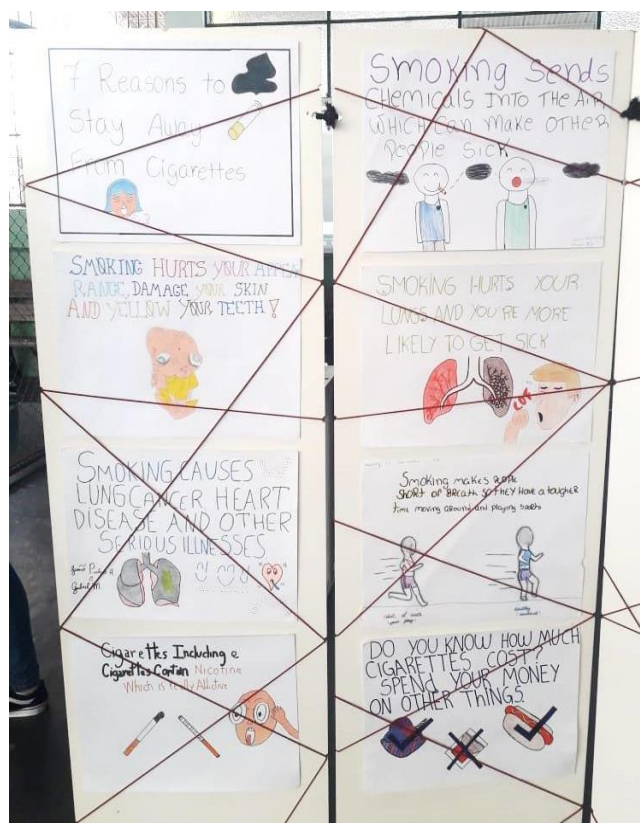 7 Reasons to
Stay Away
From Cigarettes
SMOKING HURTS YOUR APPEA
RANGE, DAMAGE YOUR SKIN
AND YELLOW YOUR TEETH!
SMOKING CAUSES
LUNG CANCER HEART
DISEASE AND OTHER
SERIOUS ILLNESSES
Cigarettes Including e
Cigarettes Contain Nicotine
Which is really Addictive
SMOKING SENDS
CHEMICALS INTO THE AIR
WHICH CAN MAKE OTHER
PEOPLE SICK
SMOKING HURTS YOUR
LUNGS AND YOU'RE MORE
LIKELY TO GET SICK
COF
Smoking makes people
SHORT OF BREATH SO THEY HAVE A tougher
time moving around and playing sports
DO YOU KNOW HOW MUCH
CIGARETTES COST?
SPEND YOUR MONEY
ON OTHER THINGS.